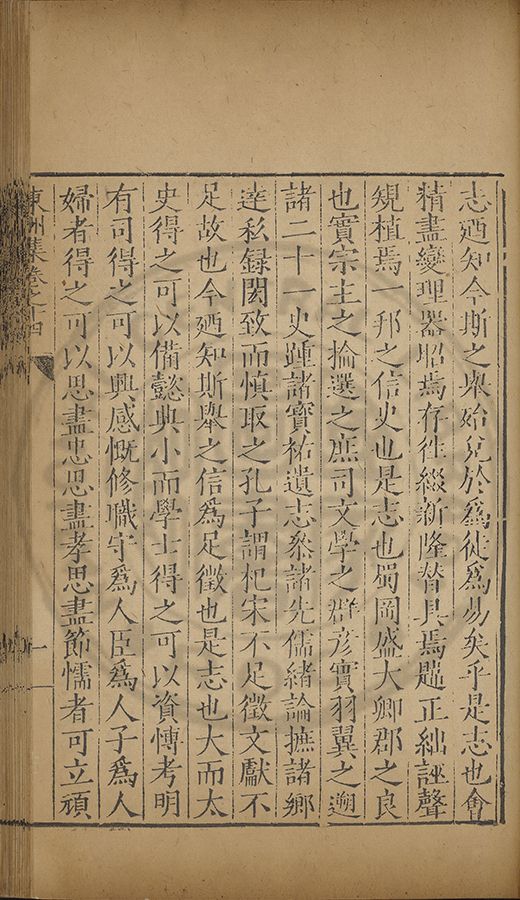 志廼知今斯之舉始免於爲徒爲易矣乎是志也會
精盡變理器昭焉存徃綴新隆替具焉韙正絀誣聲
䂓植焉一邦之信史也是志也蜀岡盛大卿郡之良
也實宗主之掄選之庶司文學之群彦實羽翼之遡
諸二十一史踵諸寶祐遺志叅諸先儒緒論摭諸鄉
逹私録閎致而慎取之孔子謂杞宋不足徵文獻不
足故也今廼知斯舉之信爲足徵也是志也大而太
史得之可以備懿典小而學士得之可以資慱考明
有司得之可以興感慨修職守爲人臣爲人子爲人
婦者得之可以思盡忠思盡孝思盡節懦者可立頑
東洲集卷之十四
一